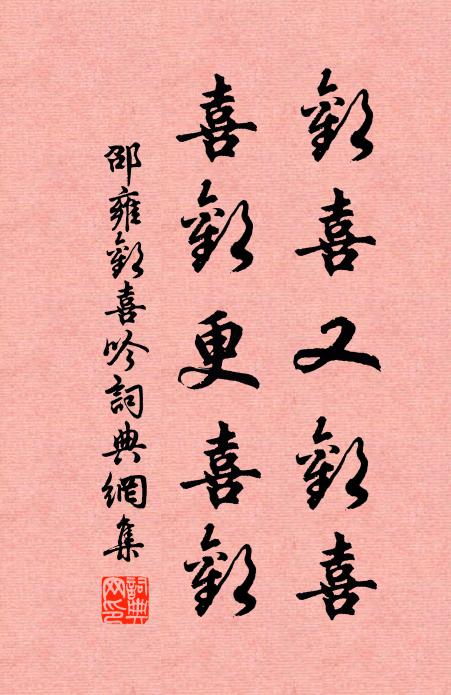 歡喜又歡喜
喜歡更喜歡
邵雍歡喜吟詞典網集
詞典
网印